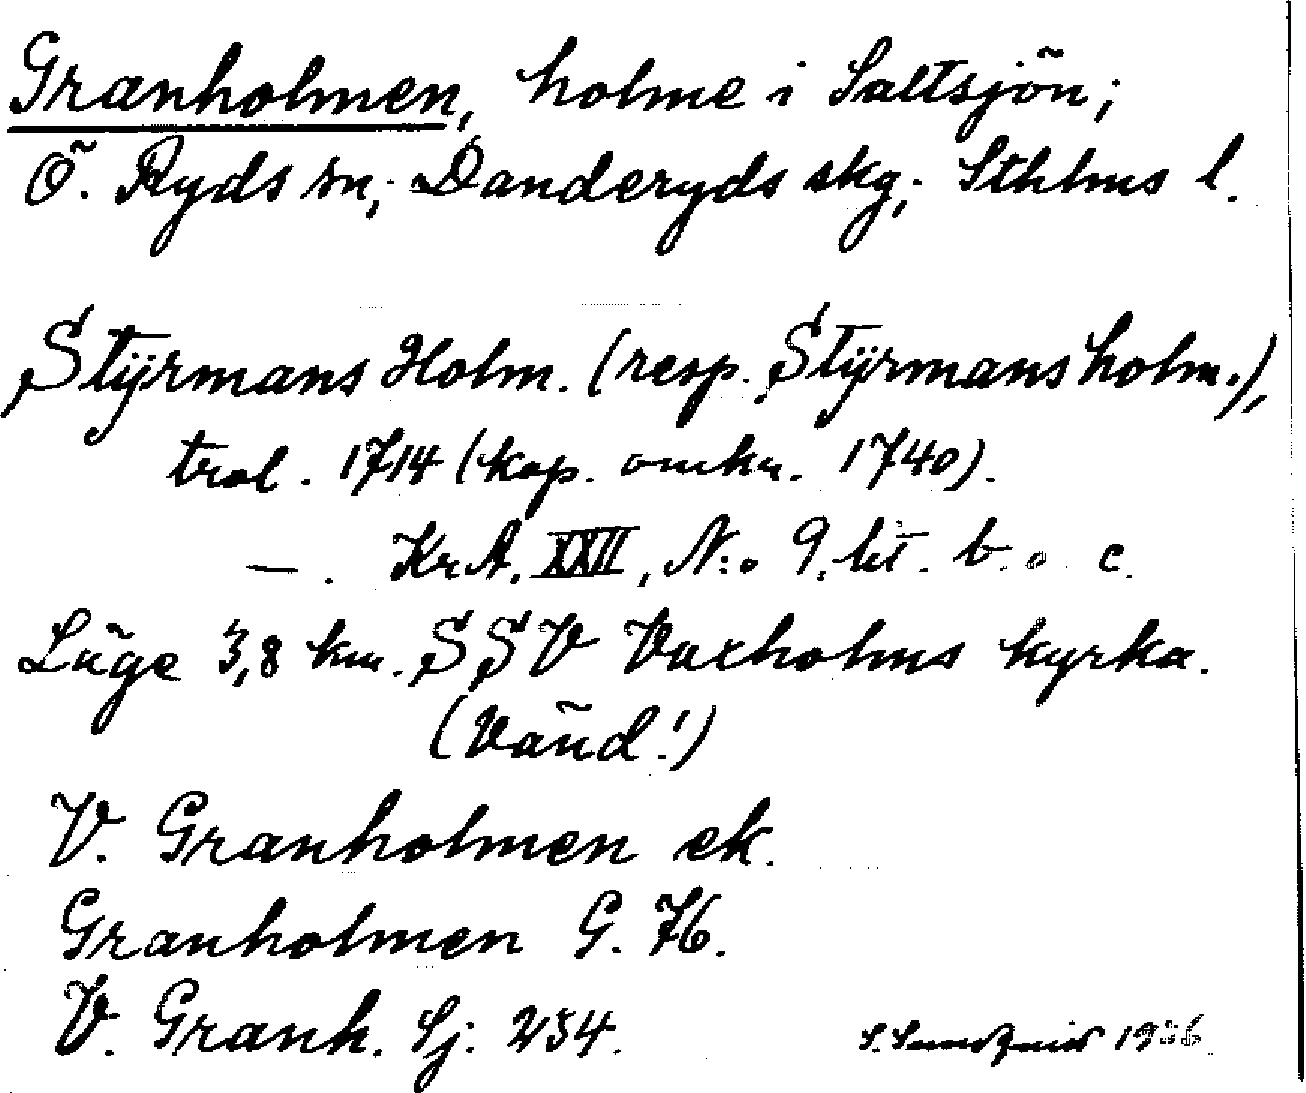 Granholmen, holme i Saltsjön;
Ö. Ryds sn; Danderyds skg; Sthlms l.
Stÿrmans Holm. (resp. Stÿrmans holm.),
trol. 1714 (kop. omkr. 1740).
—. KrA. XXII, N:o 9, lit. b. o. c.
Läge 3,8 km. SSV Vaxholms kyrka.
(Vänd!)
V. Granholmen ek.
Granholmen G. 76.
V. Granh. Sj. 254.
S. Sundqvist 1936.